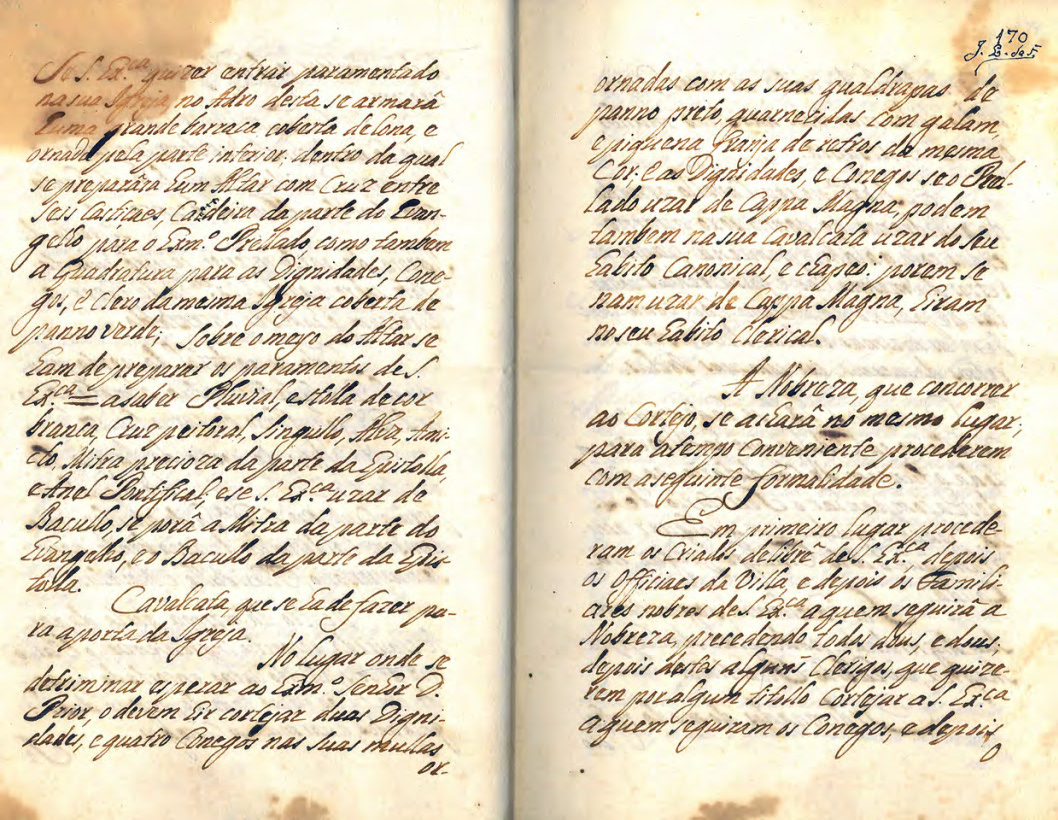 Se S. Ex.ca quizer entrar paramentado
na sua Igreja, no Adro desta se armarâ
huma grande barraca coberta de lona, e
ornada pela parte inferior; dentro da qual
se prepararâ hum Altar com Cruz entre
seis Castiçaes, Cadeira da parte do Evan-
gelho para o Exm.º Prellado como tambem
a Quadratura para as Dignidades, Cone-
gos, e Clero da mesma Igreja coberta de
panno verde; Sobre o meyo do Altar se
ham de preparar os paramentos de S.
Ex.ca = a saber Pluvial, estolla de cor
branca, Cruz peitoral, Singulo, Alva, Ami-
cto, Mitra precioza da parte da Epistolla,
e Anel Pontifical, e se S. Ex.ca uzar de
Bacullo, se porâ a Mitra da parte do
Evangelho, e o Bacullo da parte da Epis-
tolla.
Cavalcata, que se ha de fazer pa-
ra a porta da Igreja.
No lugar onde se
detriminar esperar ao Exm.º Senhor D.
Prior, o devem hir cortejar duas Digni-
dades, e quatro Conegos nas suas mullas
or-
170
J. B. de F.
ornadas com as suas gualdrapas de
panno preto, guarnecidas com galam,
e piquena franja de retros da mesma
Cor; e as Dignidades, e Conegos se o Prel-
lado uzar de Cappa Magna, podem
tambem na sua Cavalcata uzar do seu
habito Canonical, e chapeo; porem se
nam uzar de Cappa Magna, hiram
no seu habito Clerical.
A Nobreza, que concorrer
ao Cortejo, se acharâ no mesmo lugar,
para a tempo conveniente procederem
com a seguinte formalidade.
Em primeiro lugar procede-
ram os Criados de librê de S. Ex.ca, depois
os Officiaes da Villa, e depois os Famili-
ares nobres de S. Ex.ca a quem seguirâ a
Nobreza, precedendo todos dous, e dous;
depois destes alguns Clerigos, que quize-
rem por algum titollo Cortejar a S. Ex.ca
a quem seguiram os Conegos, e depois
o